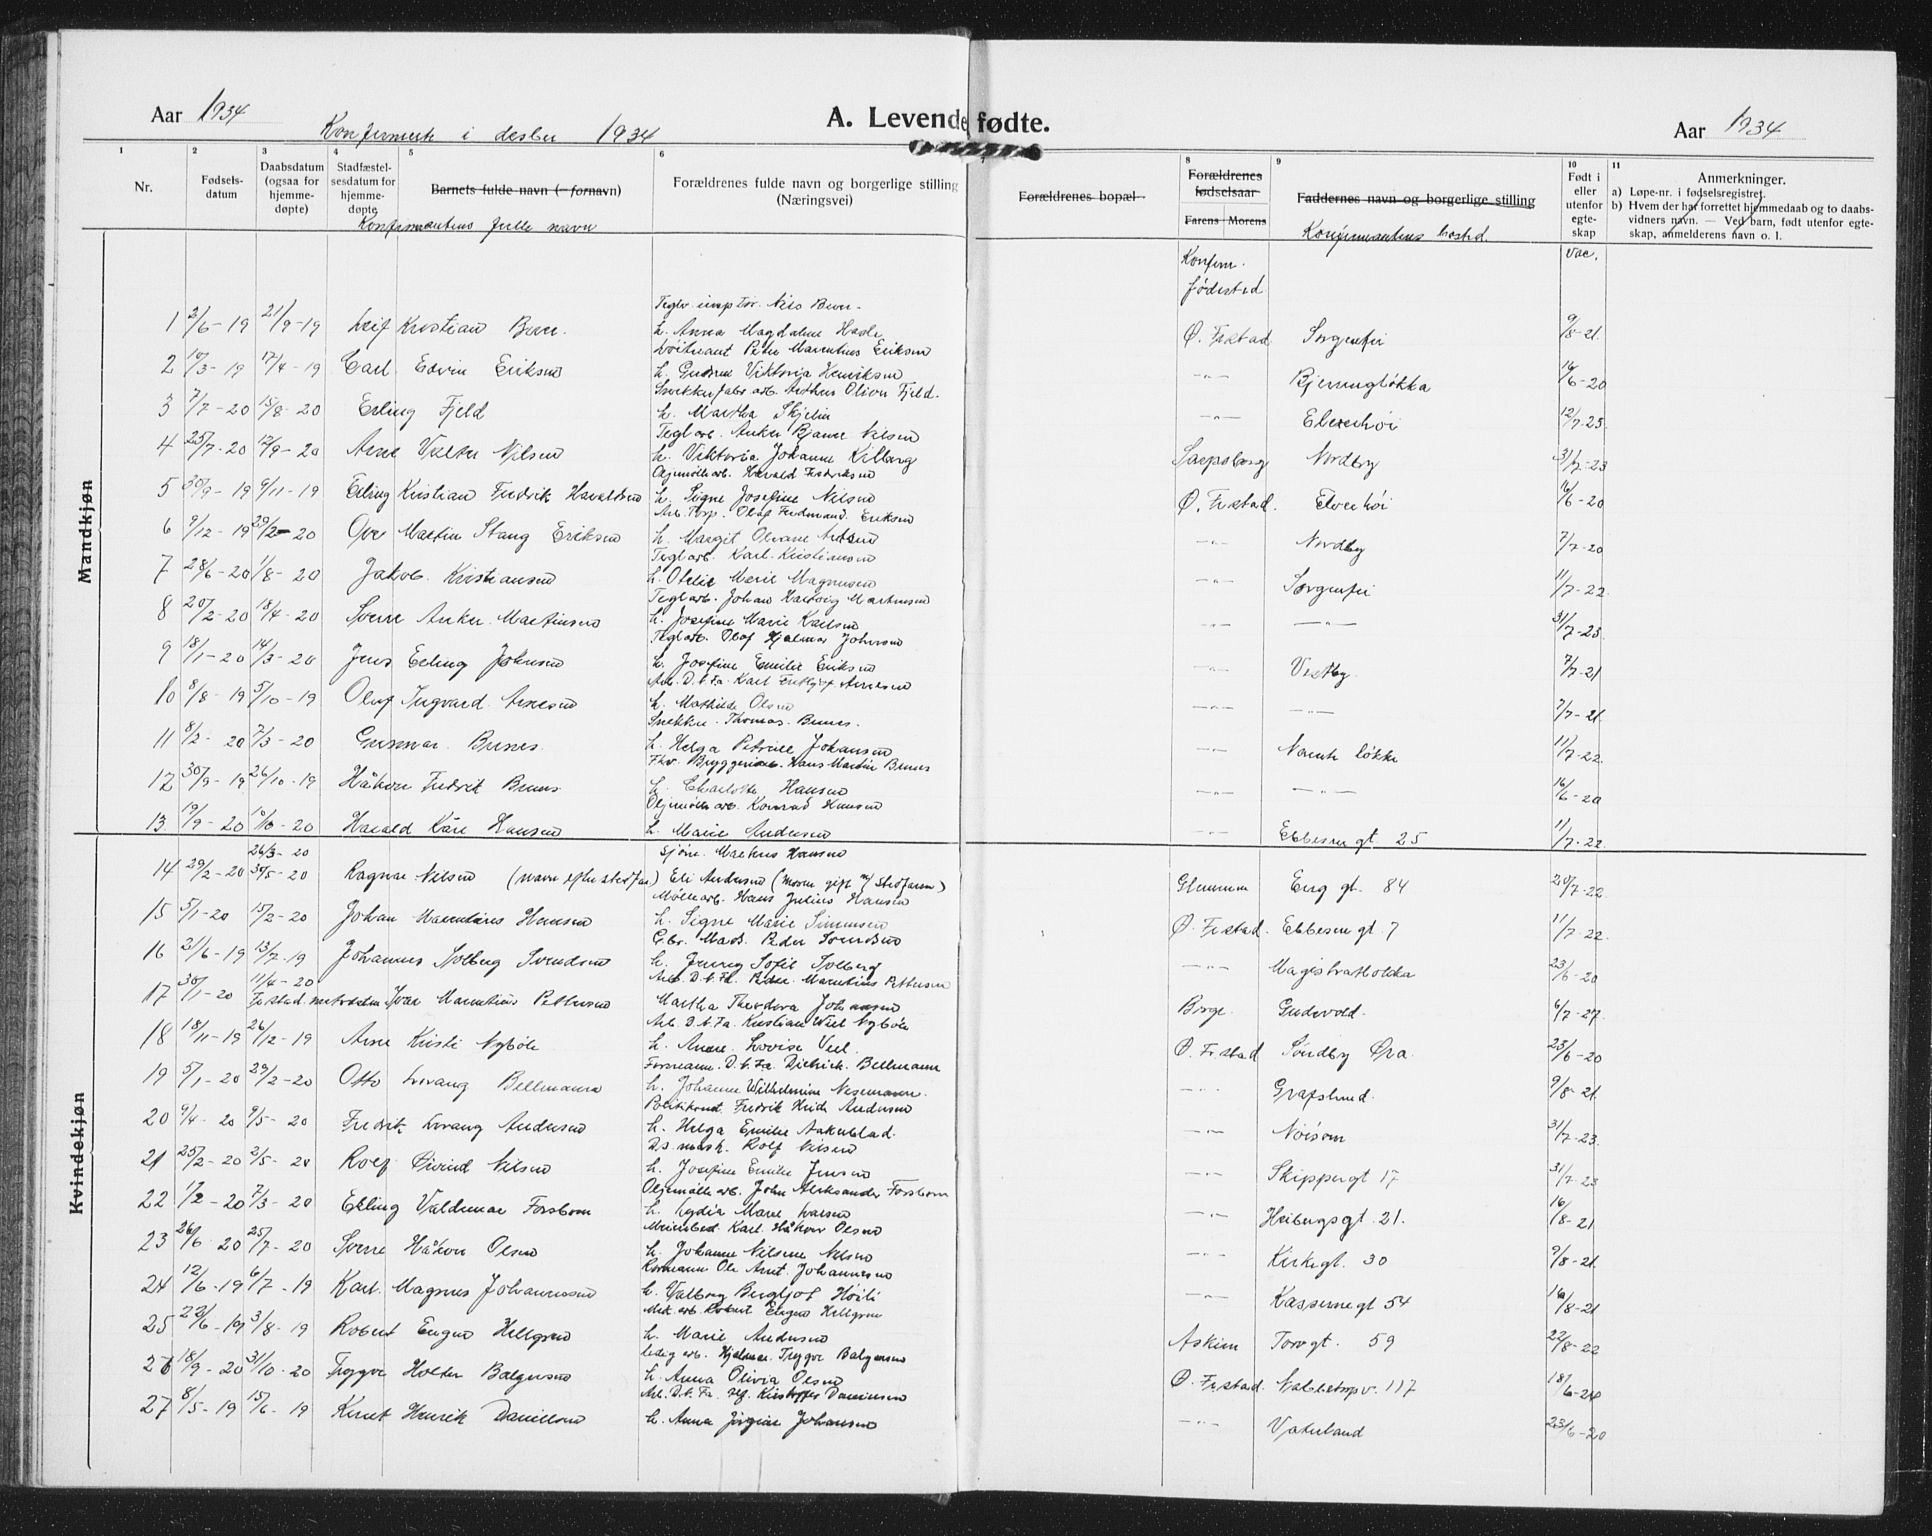 Aar 1934
A. Levende fødte.
Aar 1934
Konfirmerte i 1934
1 2 3 4 5 6 8 9 10 11
Nr.
Fødsels-
datum
Daabsdatum
(ogsaa for
hjemme-
døpte)
Stadfæstel-
sesdatum for
hjemme-
døpte
Barnets fulde navn (= fornavn)
Konfirmantens fulle navn
Forældrenes fulde navn og borgerlige stilling
(Næringsvei)
Forældrenes bopæl
Forældrenes
fødselsaar
Farens Morens
Faddernes navn og borgerlige stilling
Konfirmantens bosted.
Født i
eller
utenfor
egte-
skap
Anmerkninger.
a) Løpe-nr. i fødselsregistret.
b) Hvem der har forrettet hjemmedaab og to daabs-
vidners navn. — Ved barn, født utenfor egte-
skap, anmelderens navn o. l.
Mandkjøn
Kvindekjøn
Konfirm.
fødested
Vac.
1 2/6-19 21/9-19 Leif Kristian
h. Anna Magdalene
Ø. Fr.stad Sorgenfri 9/8-21.
2 10/3-19 17/4-19 Carl Edvin Eriksen
Peder Marentius Eriksen
h. Gudrun Viktoria Henriksen
-"- Bjerringløkka 16/6-20
3 7/7-20 15/8-20 Erling Fjeld
Arthur Oliver Fjeld.
h. Martha Skjelin
-"- Elverhöi 12/7-23
4 25/7-20 12/9-20 Arne Valter Nilsen
Teglarb. Anker Bjarne Nilsen
h. Viktoria Johanne Kilberg
Sarpsborg Nordby 31/7-23
5 30/9-19 9/11-19 Erling Kristian Fredrik Haraldsen
Oljemøllearb. Harald Fredriksen
h. Signe Josefine Nilsen
Ø. Fr.stad. Elverhöi 16/6-20
6 9/12-19 29/2-20 Ove Martin Stang Eriksen
Olaf Ferdinand Eriksen
h. Margit Oleane
-"- Nordby 7/7-20
7 28/6-20 1/8-20 Jakob Kristiansen
Teglarb. Karl Kristiansen
h. Otelie Marie Magnusen
-"- Sorgenfri 11/7-22
8 20/2-20 18/4-20 Sverre Anker Martinsen
Teglarb. Johan Hartvig Martinsen
h. Josefine Marie Karlsen
-"- -"- 31/7-23
9 18/1-20 14/3-20 Jens Erling Johnsen
Teglarb. Olaf Hjalmar Johnsen
h. Josefine Emilie Eriksen
-"- Vestby 7/7-21
10 8/8-19 5/10-19 Olaf Ingvard Arnesen
Arb. D.t.Fa. Karl Fritjof Arnesen
h. Mathilde Olsen
-"- -"- 7/7-21
11 8/2-20 7/3-20 Gunnar Bunes
Snekker Thomas Bunes.
h. Helga Petrine Johansen
-"- Narentløkke 11/7-22
12 30/9-19 26/10-19 Håkon Fredrik Bunes
Fhv. Bryggeriarb. Hans Martin Bunes
h. Charlotte Hansen
-"- -"- 16/6-20
13 19/9-20 10/10-20 Harald Kåre Hansen
Oljemøllearb. Konrad Hansen
h. Marie Andersen
-"- Ebbesensgt 25 11/7-22
14 29/2-20 26/3-20 30/5-20 Ragnar Nilsen (navn efter stedfar)
Sjøm. Markus Hansen
Eli Andersen (moren gift m/ stedfaren)
Glemmen Enggt. 84 20/7-22
15 5/1-20 15/2-20 Johan Marentius Hansen
Møllearb. Hans Julius Hansen
h. Signe Marie Simensen
Ø. Fr.stad. Ebbesensgt 7 11/7-22
16 21/6-19 13/7-19 Johannes Solberg Svendsen
Mads Peder Svendsen
h. Jenny Sofie Solberg
-"- Magistratløkka 23/6-20
17 30/1-20 11/4-20 Ivar Marentius Pettersen
Arb. D.t.Fa. Peder Marentius Pettersen
Martha Theodora Johansen
Borge Gudevold. 6/7-27.
18 18/11-19 26/12-19 Arne Kristi Nybøle
Arb. D.t.Fa. Kristian Wiel Nybøle
h. Anne Lovise Veel
Ø. Fr.stad Söndby Öra. 23/6-20
19 5/1-20 29/2-20 Otto Lorang Bellmann
Formann. D.t.Fa. Dietrich Bellmann
h. Johanne Wilhelmine Nesemann.
-"- 9/8-21
20 9/4-20 9/5-20 Fredrik Lorang Andersen
Politikonst. Fredrik Andersen
h. Helga Emilie Aakeblad.
-"- Nöisom 31/7-23.
21 25/2-20 2/5-20 Rolf Öivind Nilsen
Rolf Nilsen
h. Josefine Emilie Jensen
-"- Skippergt 17 31/7-23
22 1/2-20 7/3-20 Erling Valdemar Forsbom
Oljemøllearb. John Aleksander Forsbom
h. Lydia Marie Larsen
-"- Heibergsgt. 21. 16/8-21
23 26/6-20 25/7-20 Sverre Håkon Olsen
Karl Håkon Olsen
h. Johanne Nilsine Nilsen
-"- Kirkegt. 30 9/8-21.
24 12/6-19 6/7-19 Karl Magnus Johannessen
Ole Arnt Johannesen
h. Valborg Bergljot Höili
-"- Kasernegt 54 16/8-21
25 22/6-19 3/8-19 Robert Eugen Hellgren
Mek. arb. Robert Eugen Hellgren
h. Marie Andersen
Askim Torvgt. 59 22/8-22
26 18/9-20 31/10-20 Trygve Holter Balgersen
ledig arb. Hjalmar Trygve Balgersen
h. Anna Olivia Olsen
Ø. Fr.stad. 117 18/6-24
27 8/5-19 15/6-19 Knut Henrik Danielsen
Arb. D.t.Fa. Kristoffer Danielsen
h. Anna Jörgine Johansen
-"- Vaterland 23/6-20